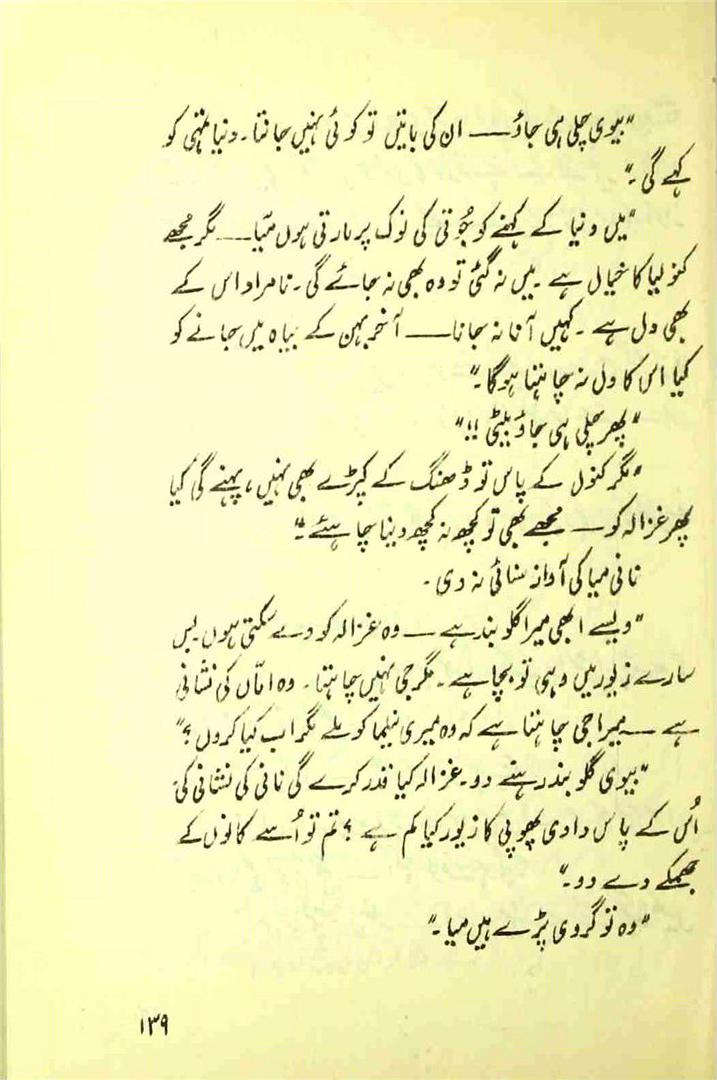 "بیوی چلی ہی جاؤ —— ان کی باتیں تو کوئی نہیں جانتا۔ دنیا تمہی کو
کہے گی۔"
"میں دنیا کے کہنے کو جُوتی کی نوک پر مارتی ہوں میّا —— مگر مجھے
کنولیا کا خیال ہے۔ میں نہ گئی تو وہ بھی نہ جائے گی۔ نامراد اس کے
بھی دل ہے۔ کہیں آنا نہ جانا —— آخر بہن کے بیاہ میں جانے کو
کیا اس کا دل نہ چاہتا ہوگا۔"
"پھر چلی ہی جاؤ بیٹی !!"
"مگر کنول کے پاس تو ڈھنگ کے کپڑے بھی نہیں، پہنے گی کیا
پھر غزالہ کو —— مجھے بھی تو کچھ نہ کچھ دینا چاہیئے۔"
نانی میا کی آواز سنائی نہ دی۔
"ویسے ابھی میرا گلوبند ہے —— وہ غزالہ کو دے سکتی ہوں بس
سارے زیور میں وہی تو بچا ہے۔ مگر جی نہیں چاہتا۔ وہ امّاں کی نشانی
ہے —— میرا جی چاہتا ہے کہ وہ میری نیلما کو ملے مگر اب کیا کروں؟"
"بیوی گلوبند رہنے دو۔ غزالہ کیا قدر کرے گی نانی کی نشانی کی؟
اُس کے پاس دادی پھوپی کا زیور کیا کم ہے؟ تم تو اُسے کانوں کے
جھمکے دے دو۔"
"وہ تو گروی پڑے ہیں میا۔"
۱۳۹